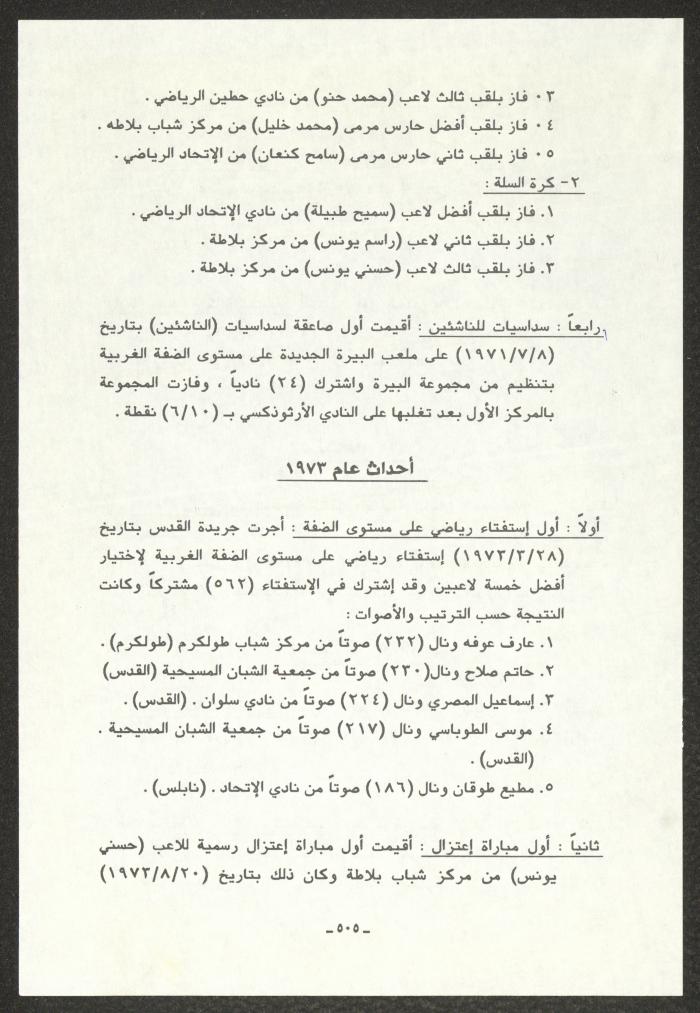 ٠٣ فاز بلقب ثالث لاعب (محمد حنو) من نادي حطين الرياضي .
٠٤ فاز بلقب أفضل حارس مرمى (محمد خليل) من مركز شباب بلاطه .
٠٥ فاز بلقب ثاني حارس مرمى (سامح كنعان) من الإتحاد الرياضي .
٢- كرة السلة :
١. فاز بلقب أفضل لاعب (سميح طبيلة) من نادي الإتحاد الرياضي .
٢. فاز بلقب ثاني لاعب (راسم يونس) من مركز بلاطة .
٣. فاز بلقب ثالث لاعب (حسني يونس) من مركز بلاطة .
رابعاً : سداسيات للناشئين : أقيمت أول صاعقة لسداسيات (الناشئين) بتاريخ
(١٩٧١/٧/٨) على ملعب البيرة الجديدة على مستوى الضفة الغربية
بتنظيم من مجموعة البيرة واشترك (٢٤) نادياً ، وفازت المجموعة
بالمركز الأول بعد تغلبها على النادي الأرثوذكسي بـ (٦/١٠) نقطة .
أحداث عام ١٩٧٣
أولاً : أول إستفتاء رياضي على مستوى الضفة : أجرت جريدة القدس بتاريخ
(١٩٧٣/٣/٢٨) إستفتاء رياضي على مستوى الضفة الغربية لإختيار
أفضل خمسة لاعبين وقد إشترك في الإستفتاء (٥٦٢) مشتركاً وكانت
النتيجة حسب الترتيب والأصوات :
١. عارف عوفه ونال (٢٣٢) صوتاً من مركز شباب طولكرم (طولكرم) .
٢. حاتم صلاح ونال(٢٣٠) صوتاً من جمعية الشبان المسيحية (القدس)
٣. إسماعيل المصري ونال (٢٢٤) صوتاً من نادي سلوان . (القدس) .
٤. موسى الطوباسي ونال (٢١٧) صوتاً من جمعية الشبان المسيحية .
(القدس) .
٥. مطيع طوقان ونال (١٨٦) صوتاً من نادي الإتحاد . (نابلس) .
ثانياً : أول مباراة إعتزال : أقيمت أول مباراة إعتزال رسمية للاعب (حسني
يونس) من مركز شباب بلاطة وكان ذلك بتاريخ (١٩٧٣/٨/٢٠)
ـ ٥٠٥ ـ